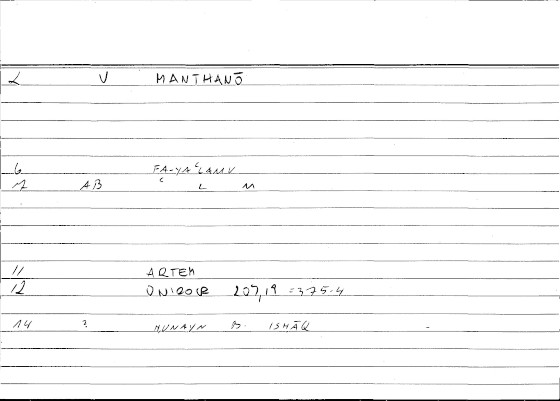 L V MANTHANŌ
6 FA-YAʿLAMU
7 AB ʿ L M
11 ARTEM
12 ONIROCR 207,19 = 375-4
14 ? ḤUNAYN B. ISḤĀQ